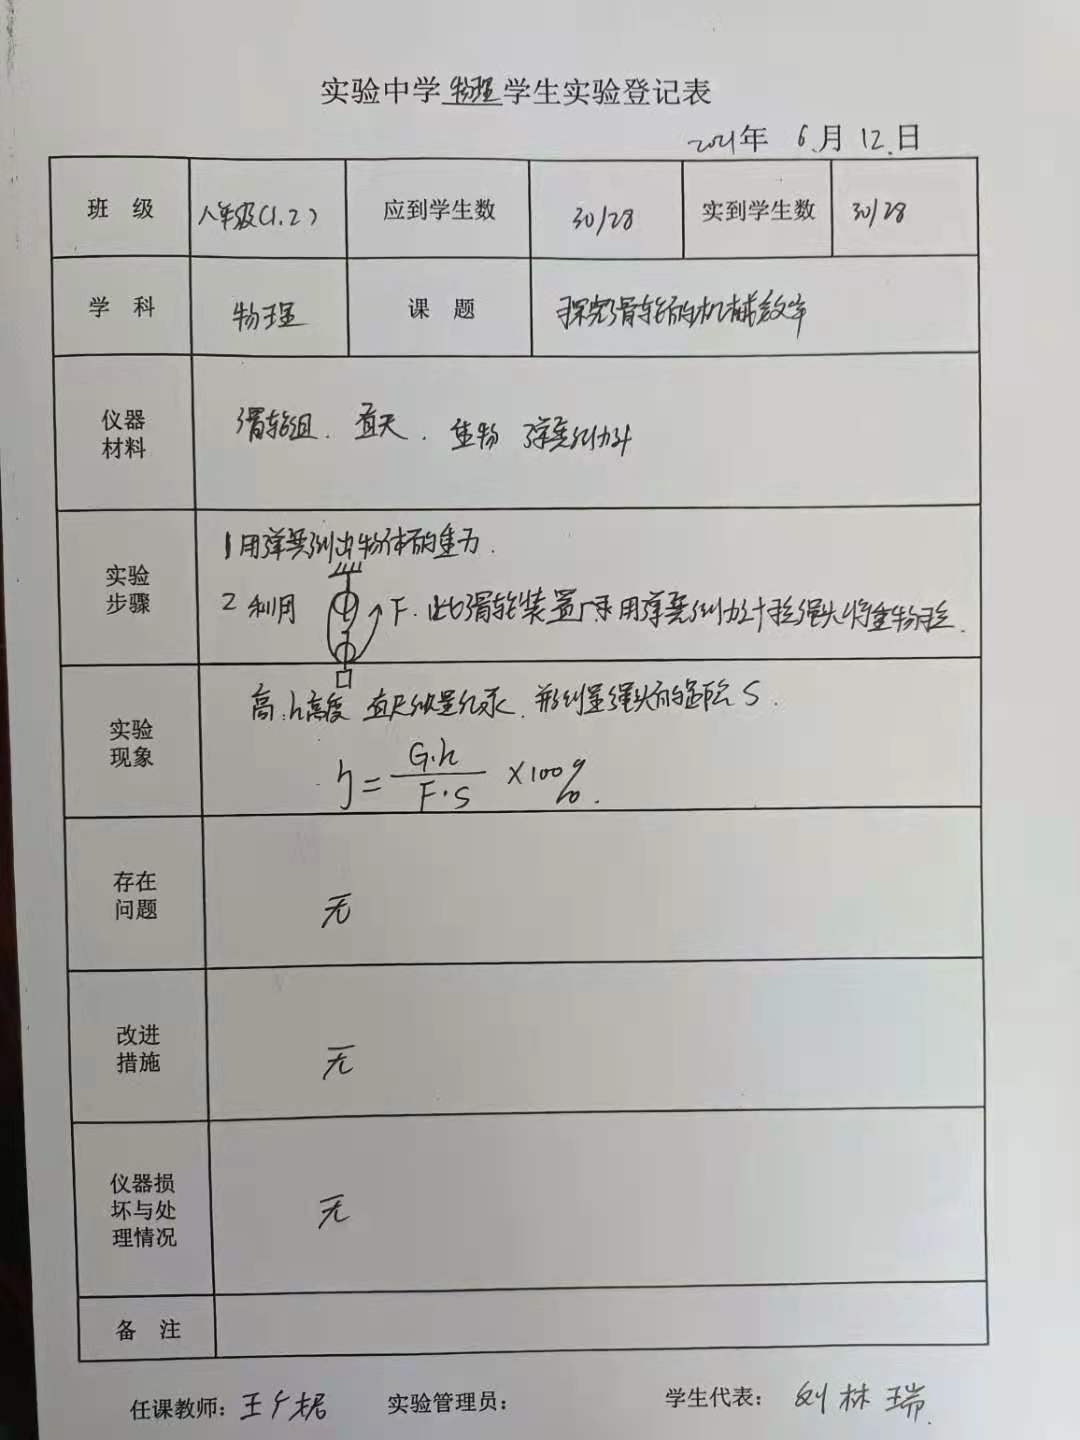 实验中学物理学生实验登记表
2021年 6月12日
班 级 八年级(1.2) 应到学生数 30/28 实到学生数 30/28
学 科 物理 课 题 探究滑轮的机械效率
仪器
材料
滑轮组、直尺、重物 弹簧测力计
实验
步骤
1 用弹簧测出物体的重力.
2 利用 F. 此滑轮装置 用弹簧测力计拉绳头将重物拉
实验
现象
高.h高度 直尺测量纪录.并测量绳头的距离S.
η=G·h/F·S ×100%.
存在
问题
无
改进
措施
无
仪器损
坏与处
理情况
无
备 注
任课教师: 王 实验管理员: 学生代表: 刘林瑞